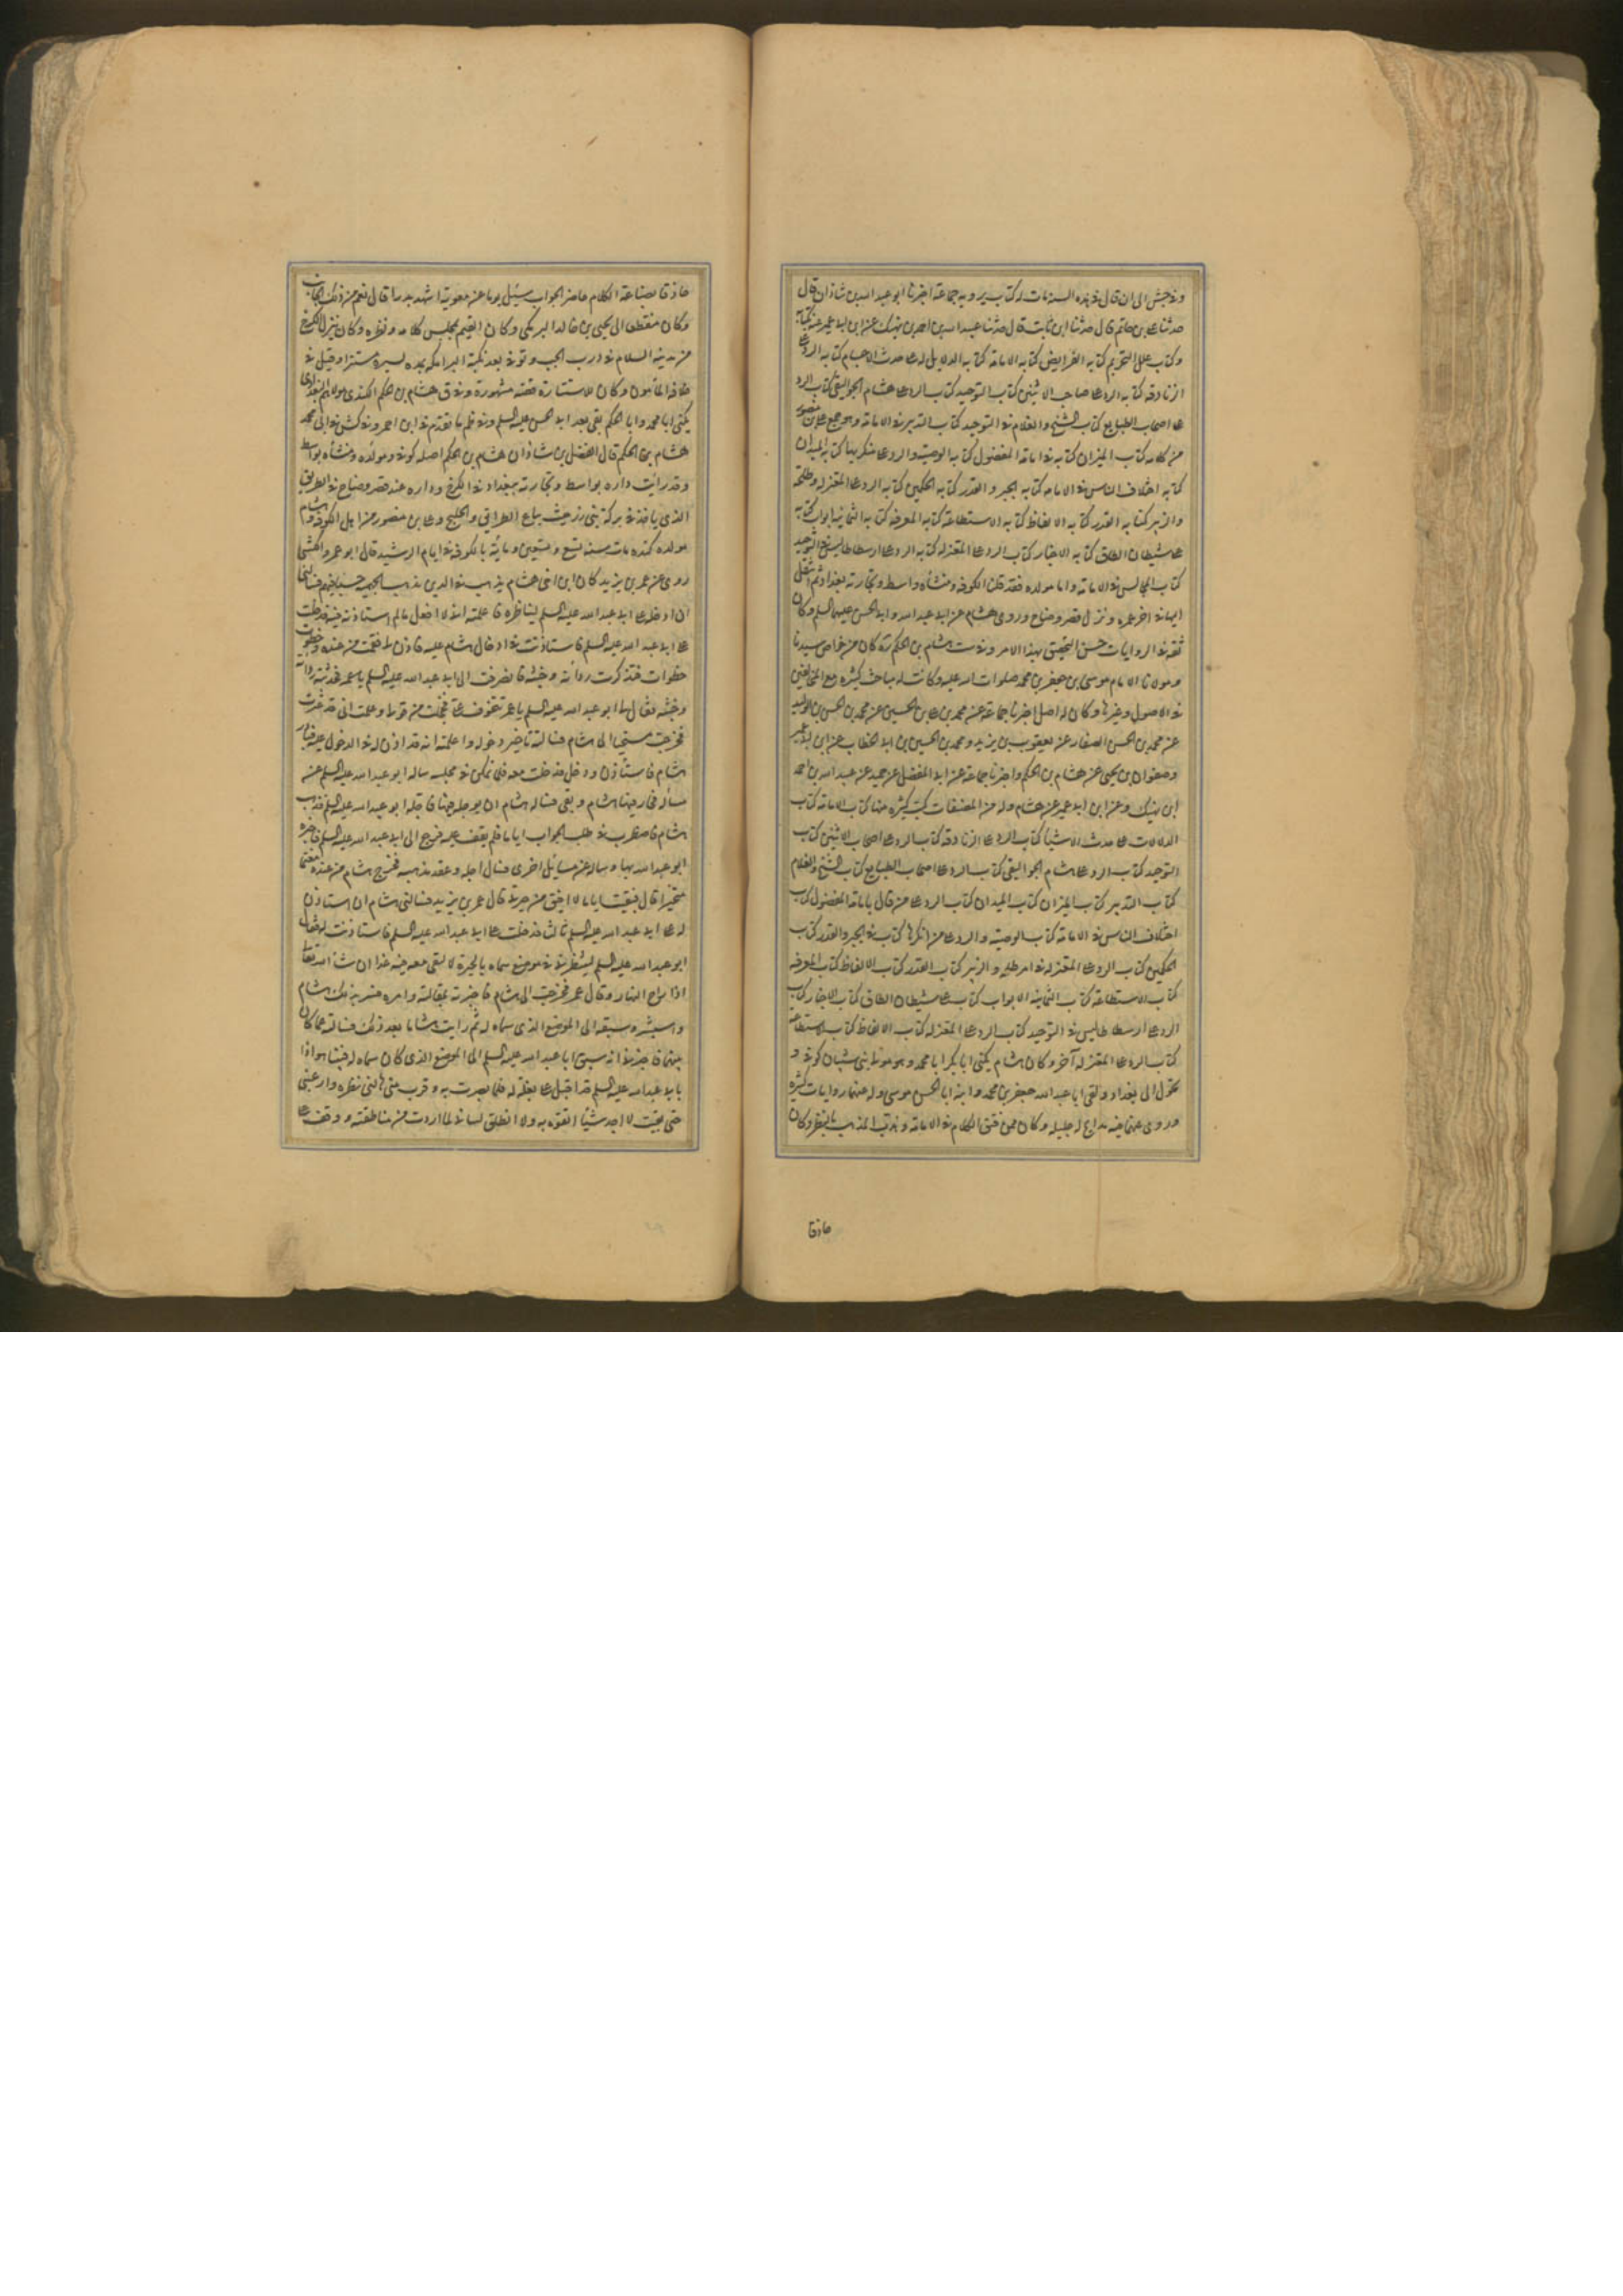 وفي جش الى ان قال في هذه السنة مات له كتاب يرويه جماعة اخبرنا ابو عبد الله بن شاذان قال
حدثنا علي بن حاتم قال حدثنا ابن ثابت قال حدثنا عبيد الله بن احمد بن نهيك عن ابن ابي عمير عنه كتابه
وكتاب علل التحريم كتابه الفرايض كتابه الامامة كتابه الدلايل له على حدث الاجسام كتابه الرد على
الزنادقه كتابه الرد على صاحب الاثنين كتاب التوحيد كتاب الرد على هشام الجواليقى كتاب الرد
على اصحاب الطبايع كتاب الشيخ والغلام في التوحيد كتاب التدبير في الامامة وهو جمع علي بن منصور
من كلامه كتاب الميزان كتابه في امامة المفضول كتابه الوصية والرد على منكريها كتابه الميدان
كتابه اختلاف الناس في الامامه كتابه الجبر والقدر كتابه الحكمين كتابه الرد على المعتزله وطلحة
والزبير كتابه القدر كتابه الالفاظ كتابه الاستطاعة كتابه المعرفه كتابه الثمانية ابواب كتابه
على شيطان الطاق كتابه الاخبار كتاب الرد على المعتزله كتابه الرد على ارسطاطاليس في التوحيد
كتاب المجالس في الامامة واما مولده فقد قلنا الكوفه ومنشأه واسط وتجارته بغداد ثم انتقل
اليها في اخر عمره ونزل قصر وضاح وروى هشام عن ابي عبد الله وابي الحسن عليهما السلم وكان
ثقه في الروايات حسن التحقيق بهذا الامر وفي ست هشام بن الحكم ره كان من خواص سيدنا
ومولانا الامام موسى بن جعفر بن محمد صلوات الله عليه وكانت له مباحث كثيره مع المخالفين
في الاصول وغيرها وكان له اصل اخبرنا جماعة عنه محمد بن علي بن الحسين عن محمد بن الحسن بن الوليد
عن محمد بن الحسن الصفار عن يعقوب بن يزيد ومحمد بن الحسين بن ابي الخطاب عن ابن ابي عمير
وصفوان بن يحيى عن هشام بن الحكم واخبرنا جماعة عن ابي المفضل عن حميد عن عبد الله بن احمد
ابن نهيك وعن ابن ابي عمير عن هشام وله من المصنفات كتب كثيره منها كتاب الامامة كتاب
الدلالات على حدث الاشيا كتاب الرد على الزنادقه كتاب الرد على اصحاب الاثنين كتاب
التوحيد كتاب الرد على هشام الجواليقى كتاب الرد على اصحاب الطبايع كتاب الشيخ والغلام
كتاب التدبير كتاب الميزان كتاب الميدان كتاب الرد على من قال بامامة المفضول كتاب
اختلاف الناس في الامامة كتاب الوصية والرد على من انكرها كتاب في الجبر والقدر كتاب
الحكمين كتاب الرد على المعتزله في امر طلحه والزبير كتاب القدر كتاب الالفاظ كتاب المعرفه
كتاب الاستطاعة كتاب الثمانية الابواب كتاب على شيطان الطاق كتاب الاخبار كتاب
الرد على ارسطاطاليس في التوحيد كتاب الرد على المعتزله كتاب الالفاظ كتاب الاستطاعه
كتاب الرد على المعتزله آخر وكان هشام يكنى ابا بكر ابا محمد وهو مولا بني شيبان كوفي و
تحول الى بغداد ولقى ابا عبد الله جعفر بن محمد وابنه ابا الحسن موسى وله عنهما روايات كثيره
وروى عنهما فيه مدايح له جليله وكان ممن فتق الكلام في الامامة وهذب المذهب بالنظر وكان
حاذقا
حاذقا بصناعة الكلام حاضر الجواب سئل يوما عن معوية اشهد بدرا قال نعم من ذلك الجانب
وكان منقطعا الى يحيى بن خالد البرمكي وكان القيم بمجلس كلامه ونظره وكان ينزل الكرخ
من مدينة السلام في درب الجب وتوفي بعد نكبة البرامكه بمده يسيرة مستترا وقيل في
خلافه المأمون وكان لاستتاره قصة مشهورة وفي ق هشام بن الحكم الكندى مولاهم البغدادى
يكنى ابا محمد وابا الحكم بقى بعد ابي الحسن عليه السلم وفي ظم ما تقدم في ابن احمر وفي كش في ابى محمد
هشام بن الحكم قال الفضل بن شاذان هشام بن الحكم اصله كوفي ومولده ومنشأه بواسط
وقد رأيت داره بواسط وتجارته ببغداد في الكرخ وداره عند قصر وضاح في الطريق
الذى ياخذ في بركة بني زرزر حيث يباع الطرايف والخليج وعلي بن منصور من اهل الكوفه وهشام
مولده كنده مات سنه تسع وتسعين ومائة بالكوفه في ايام الرشيد قال ابو عمرو الكشى
روى عن عمر بن يزيد كان ابن اخى هشام يذهب في الدين مذهب الجهميه خبيثا فيهم فسالنى
ان ادخله على ابي عبد الله عليه السلم ليناظره فاعلمته انى لا افعل مالم استاذنه فيه فدخلت
على ابي عبد الله عليه السلم فاستاذنت في ادخال هشام عليه فاذن لي فقمت من عنده وخطوت
خطوات فذكرت رداته وخبثه فانصرفت الى ابي عبد الله عليه السلم فحدثته رداته
وخبثه فقال لي ابو عبد الله عليه السلم يا عمر تتخوف على فخجلت من قولي وعلمت انى قد عثرت
فخرجت مستحيا الى هشام فسالته تاخير دخوله واعلمته انه قد اذن له في الدخول عليه فبادر
هشام فاستأذن ودخل فدخلت معه فلما تمكن في مجلسه ساله ابو عبد الله عليه السلم عن
مسأله فحار فيها هشام وبقى فساله هشام ان يوجله فيها فاجله ابو عبد الله عليه السلم فذهب
هشام فاضطرب في طلب الجواب اياما فلم يقف عليه فرجع الى ابي عبد الله عليه السلم فاخبره
ابو عبد الله بها وساله عن مسايل اخرى فسال اجله وعقد مذهبه فخرج هشام من عنده مغتما
متحيرا قال فبقيت اياما لا افيق من حيرتي قال عمر بن يزيد فسالنى هشام ان استاذن
له على ابي عبد الله عليه السلم ثالثا فدخلت على ابي عبد الله عليه السلم فاستاذنت له فقال
ابو عبد الله عليه السلم لينتظرني في موضع سماه بالحيرة لالتقى معه فيه غدا ان شا الله تعالى
اذا راح النهار وقال عمر فخرجت الى هشام فاخبرته بمقالته وامره فسر بذلك هشام
واستبشر وسبقه الى الموضع الذى سماه له ثم رايت هشاما بعد ذلك فسالته عما كان
بينهما فاخبرني انه سبق ابا عبد الله عليه السلم الى الموضع الذى كان سماه له فبينا هو اذا
بابي عبد الله عليه السلم قد اقبل على بغلة له فلما بصرت به وقرب منى هالنى منظره وارعبنى
حتى بقيت لا اجد شيئا اتفوه به ولا انطلق لساني لما اردت من مناطقته ووقف على